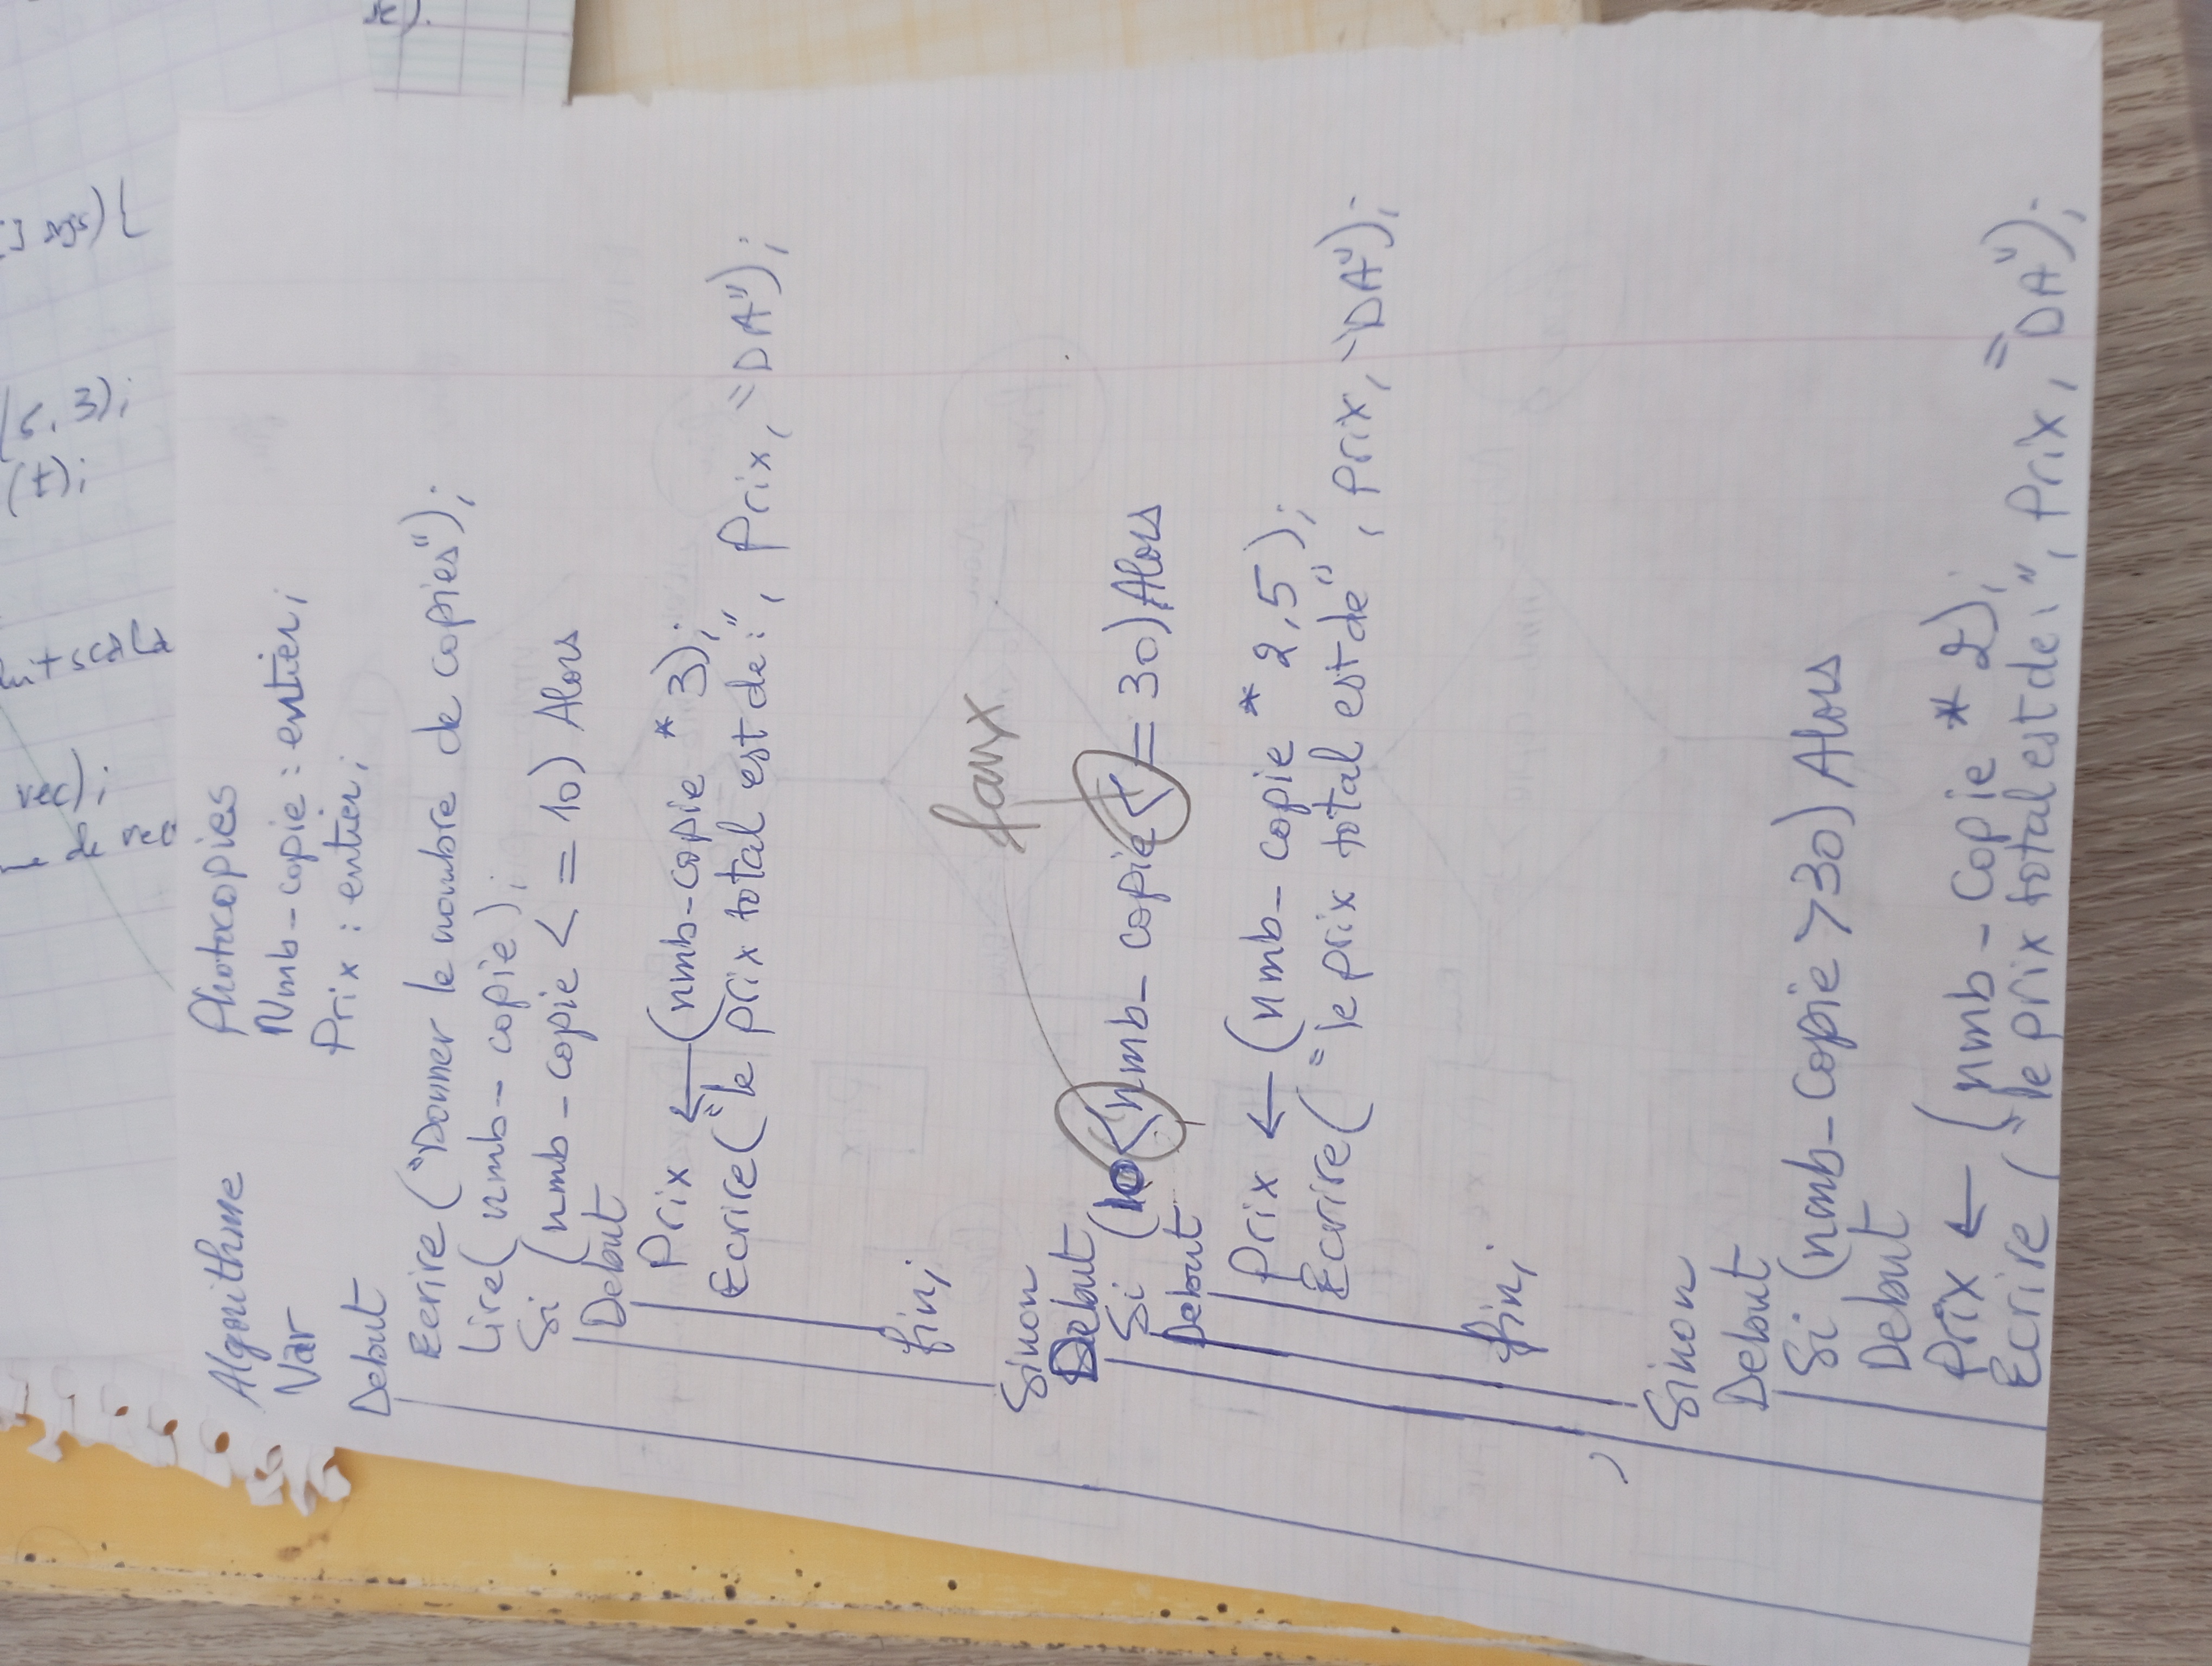 vec);
me de vec
int scala
/6, 3);
(t);
Algorithme Photocopies
Var Nmb-copie : entier;
Prix : entier;
Debut
Ecrire ("Donner le nombre de copies");
Lire( nmb-copie);
Si (nmb-copie < = 10) Alors
Debut
Prix ← (nmb-copie * 3);
Ecrire("le prix total est de:", Prix, "DA");
fin;
faux
Sinon
Debut
Si (10 < nmb-copie < = 30) Alors
Debut
Prix ← (nmb-copie * 2,5);
Ecrire( "le prix total est de", prix, "DA");
fin;
Sinon
Debut
Si (nmb-Copie >30) Alors
Debut
Prix ← (nmb-Copie * 2);
Ecrire ("le prix total est de:", Prix, "DA");